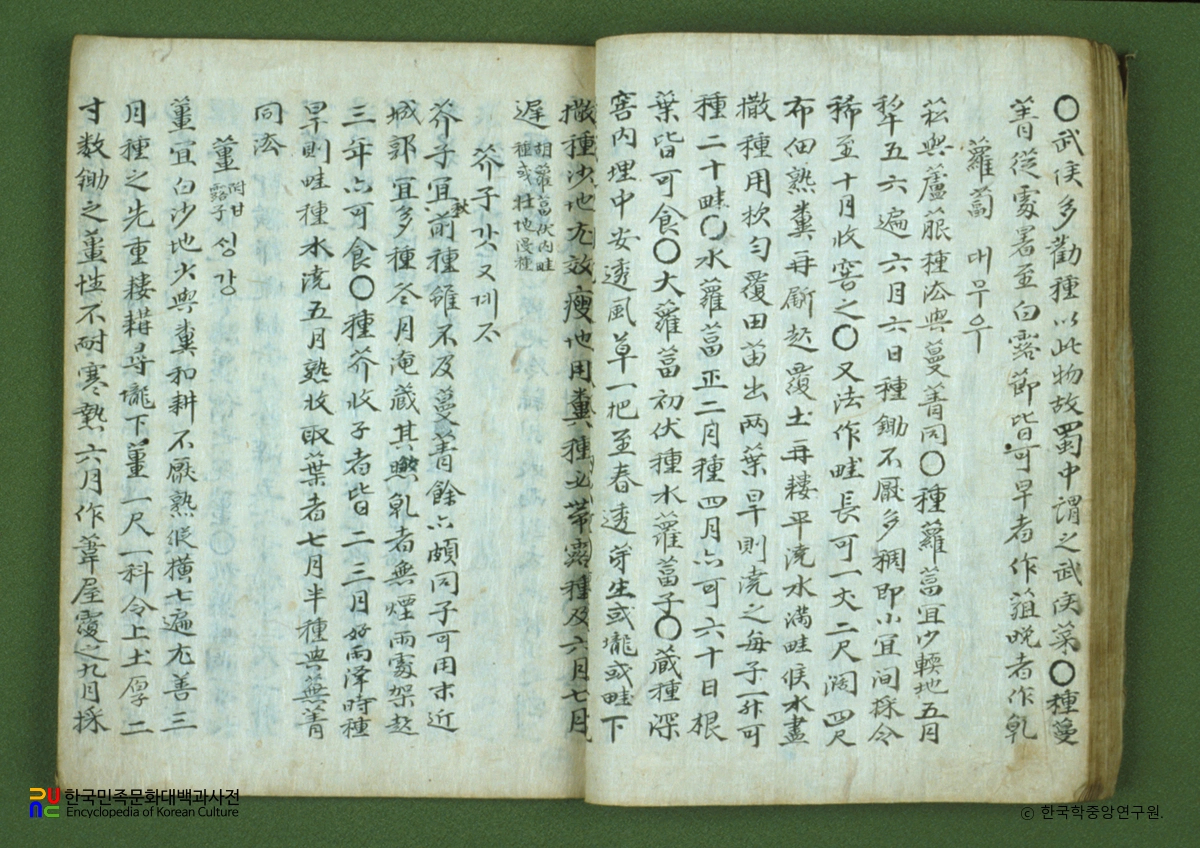 〇武侯多勸種以此物故蜀中謂之武侯菜〇種蔓
菁從處暑至白露節皆可早者作葅晚者作乹
蘿蔔 대무우
菘與蘆菔種法與蔓菁同〇種蘿蔔宜沙軟地五月
犂五六遍六月六日種鋤不厭多稠即小冝间採令
稀至十月收窖之〇又法作畦長可一丈二尺闊四尺
布细熟糞再斸起覆土再耬平澆水滿畦候水盡
撒種用杴匀覆田苗出两葉旱則澆之每子一升可
種二十畦〇水蘿蔔正二月種四月六可六十日根
葉皆可食〇大蘿蔔初伏種水蘿蔔子〇藏種深
窖内埋中安透風草一把至春透芽生或壠或畦下
撒種沙地尤效瘦地用糞種必帶露種及六月七月
遲 胡蘿蔔伏内畦
種或壮地漫種
芥子 갓 又 계ᄌᆞ
芥子宜秋前種雖不及蔓菁餘六頗同子可用末近
城郭宜多種冬月淹藏其㷔乹者無煙雨處架起
三年六可食〇種芥收子者皆二三月好雨澤時種
旱則畦種水澆五月熟收取葉者七月半種與蕪菁
同法
薑 싱강
薑宜白沙地少與糞和耕不厭熟縱横七遍尤善三
月種之先重耬耩尋壠下薑一尺一科令上土厚二
寸数鋤之薑性不耐寒熱六月作葦屋覆之九月採
한국민족문화대백과사전
Encyclopedia of Korean Culture
ⓒ 한국학중앙연구원.